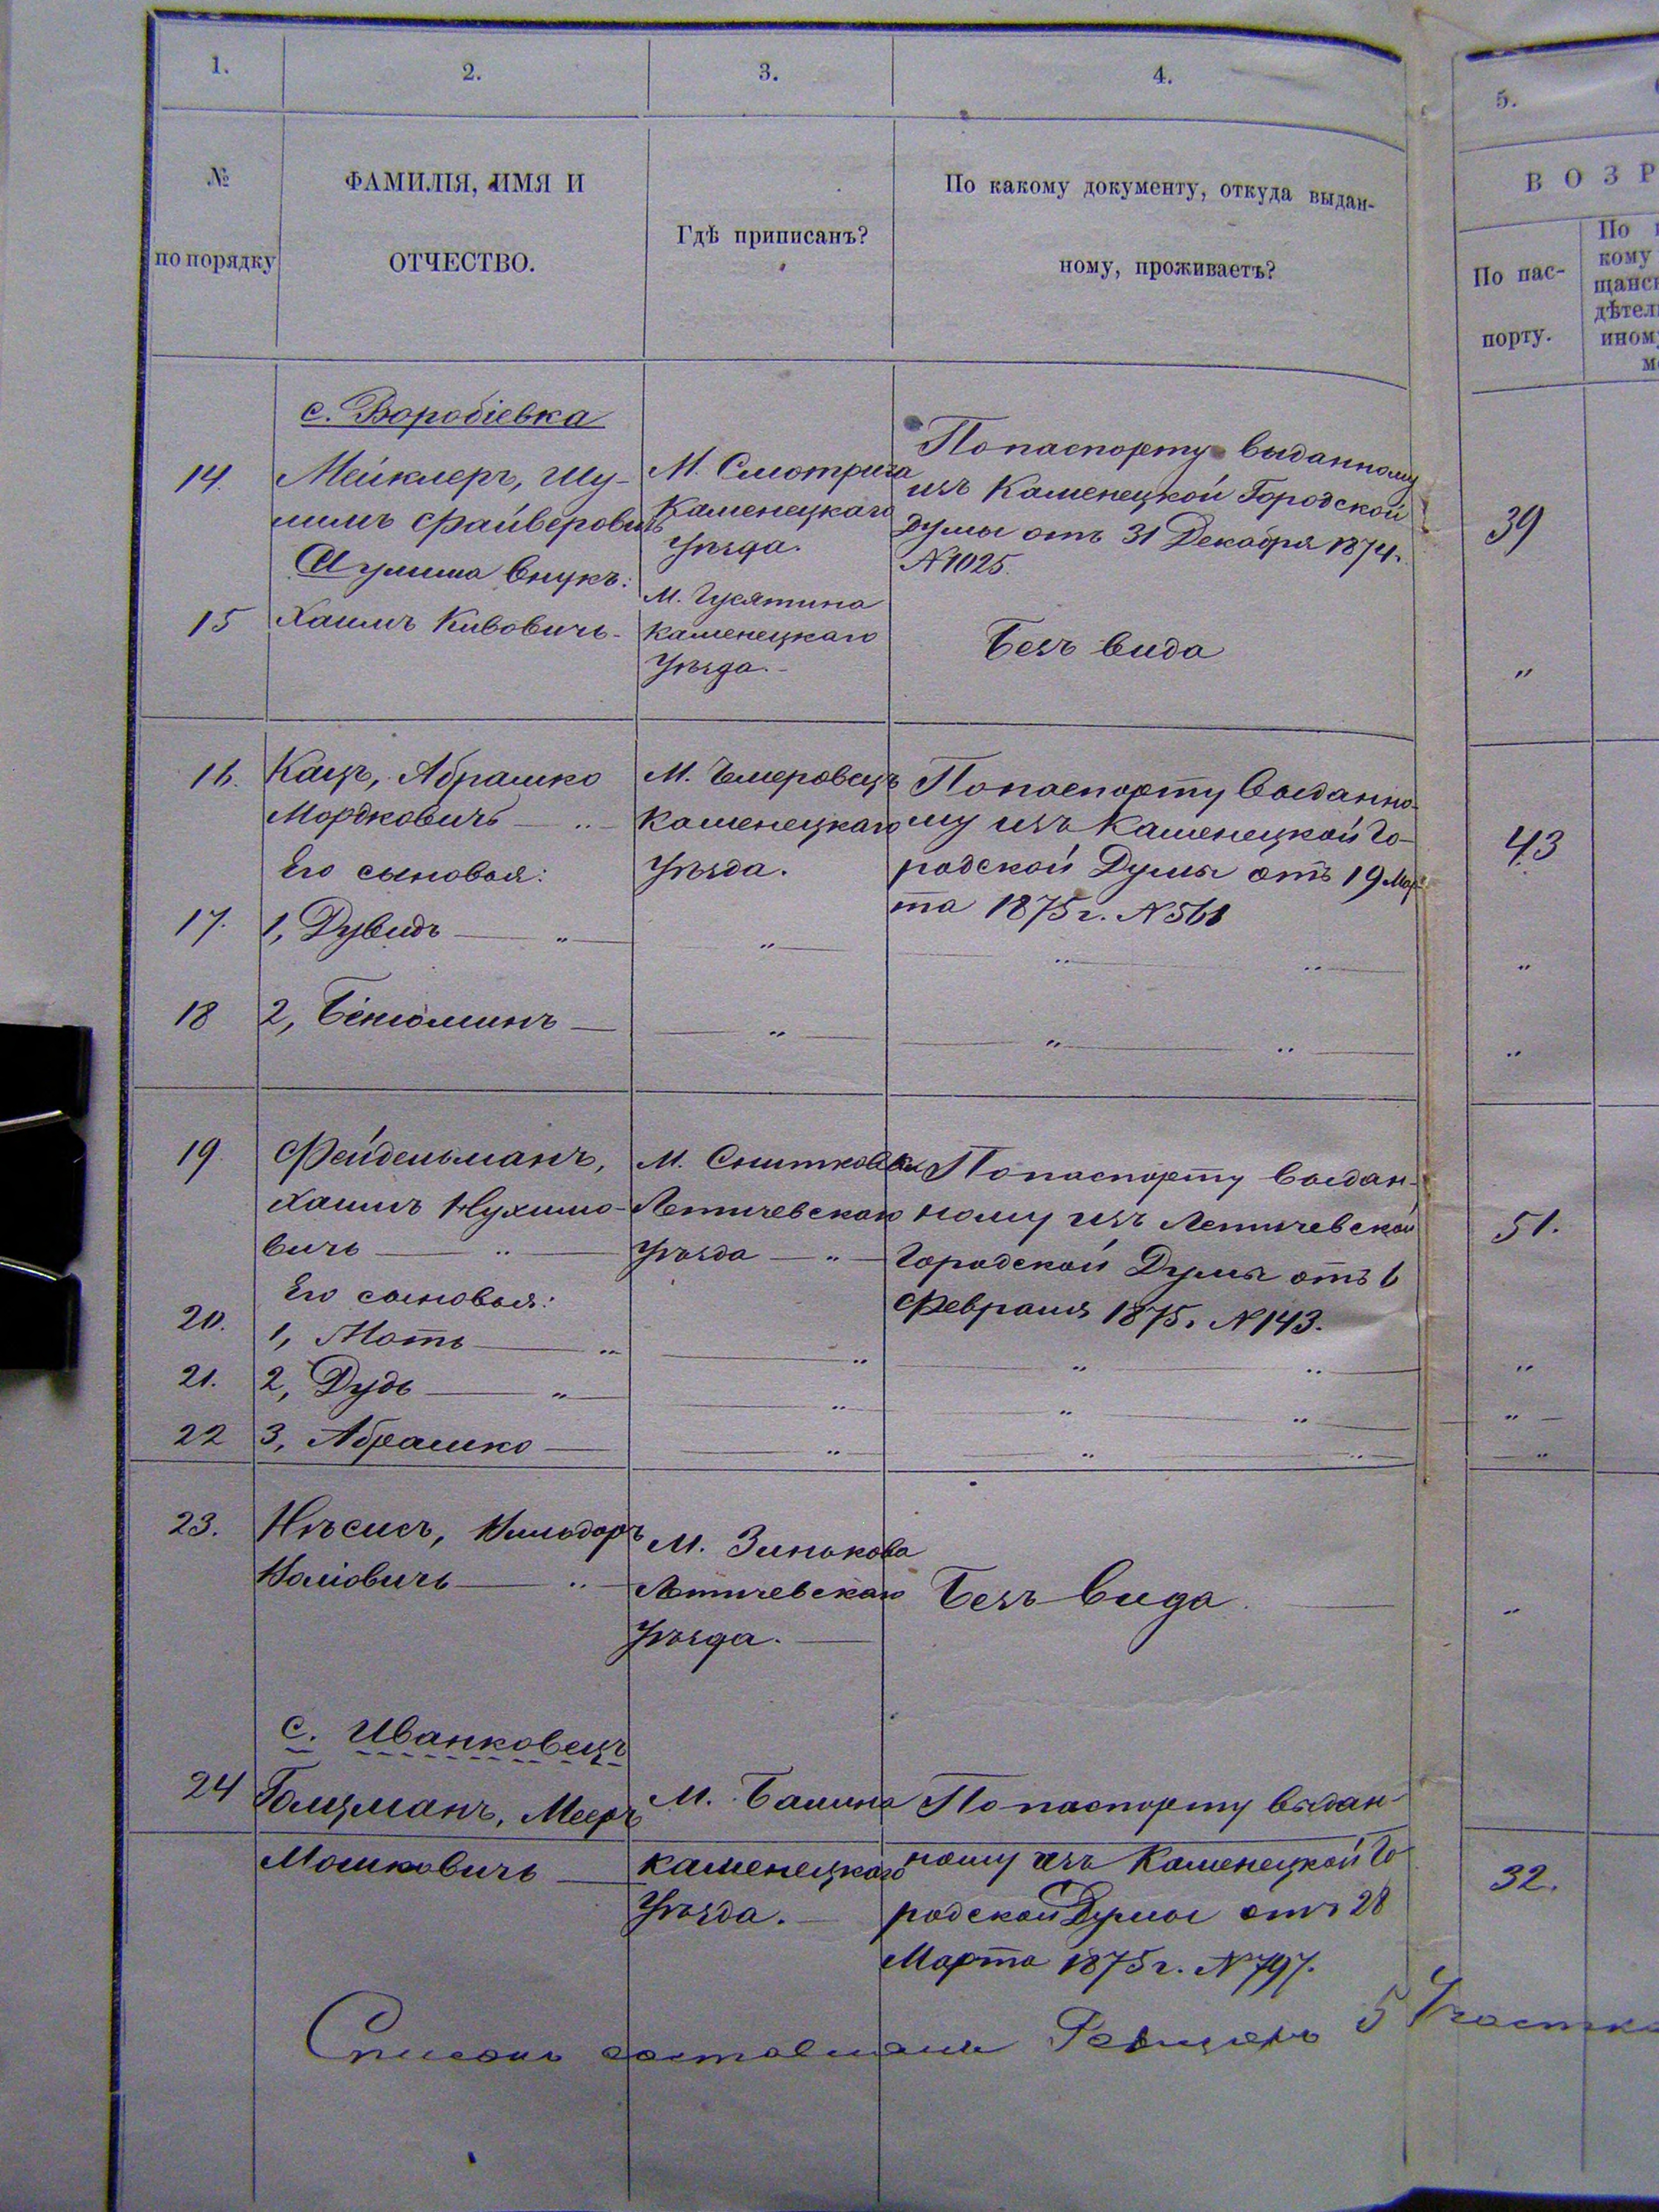 1. 2. 3. 4. 5.
№ по порядку
ФАМИЛІЯ, ИМЯ И
ОТЧЕСТВО.
Гдѣ приписанъ?
По какому документу, откуда выдан-
ному, проживаетъ?
ВОЗР
По пас-
порту.
По
кому
щанск
дѣтел
иному
м
с. Воробіевка
14. Мейклеръ, Шу-
лимъ Файверовичъ
М. Смотрича
Каменецкаго
Уѣзда.
По паспорту выданному
изъ Каменецкой Городской
Думы отъ 31 Декабря 1874 г.
№ 1025.
39
Шулима внукъ:
15 Хаимъ Кивовичъ
М. Гусятина
Каменецкаго
Уѣзда.
Безъ вида
"
16. Кацъ, Абрашко
Мордковичъ — " —
М. Чемеровецъ
Каменецкаго
Уѣзда.
По паспорту выданно-
му изъ Каменецкой Го-
родской Думы отъ 19 Мар-
та 1875 г. № 561
43
Его сыновья:
17. 1, Дувидъ — " — " " " "
18 2, Бенюминъ — " " " "
19 Фейдельманъ,
Хаимъ Нухимо-
вичъ — " —
М. Снитковки
Летичевскаго
Уѣзда — " —
По паспорту выдан-
ному изъ Летичевской
Городской Думы отъ 6
Февраля 1875. № 143.
51.
Его сыновья:
20. 1, Моть — " " " " "
21. 2, Дудь — " — " " " "
22 3, Абрашко — " " " "
23.
М. Зинькова
Летичевскаго
Уѣзда. —
Безъ вида. —
"
с. Иванковецъ
24 Голцманъ, Мееръ
Мошковичъ —
М. Балина
Каменецкаго
Уѣзда. —
По паспорту выдан-
ному изъ Каменецкой Го-
родской Думы отъ 28
Марта 1875 г. № 797.
32.
Списокъ составлялъ 5 Участка